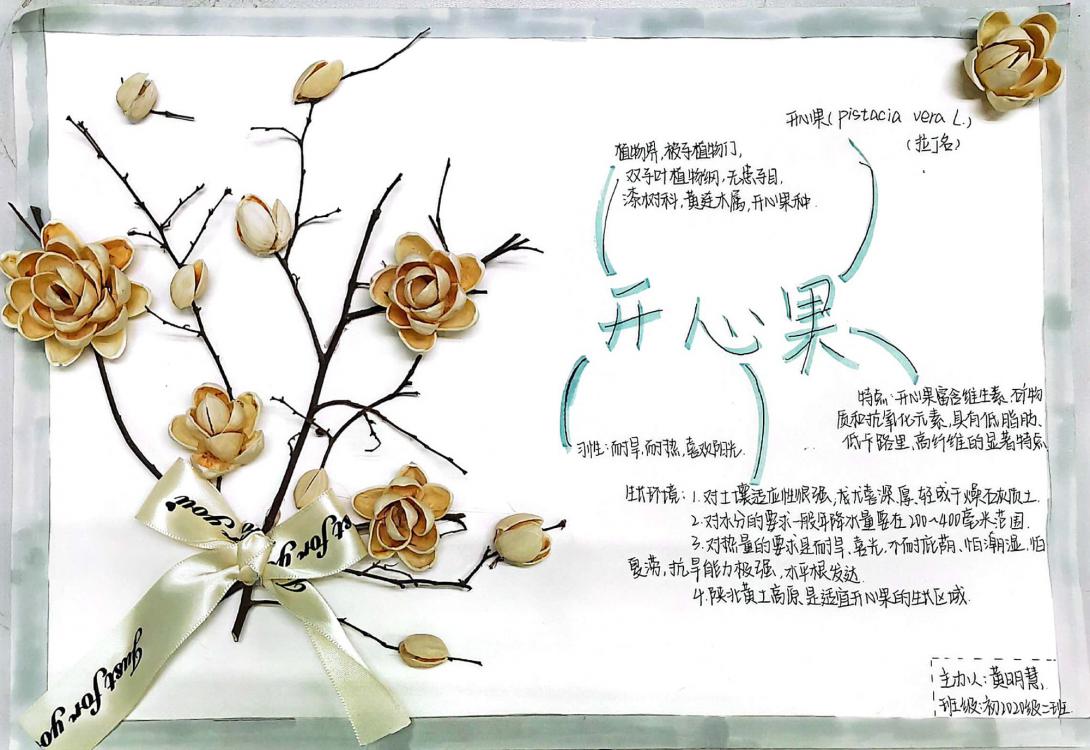 开心果(pistacia vera L.)
(拉丁名)
植物界,被子植物门,
双子叶植物纲,无患子目,
漆树科,黄连木属,开心果种.
开心果
特点:开心果富含维生素、矿物
质和抗氧化元素,具有低脂肪、
低卡路里、高纤维的显著特点
习性:耐旱,耐热,喜欢阳光.
生长环境:1.对土壤适应性很强,尤尤喜深厚,轻或干燥石灰质土.
2.对水分的要求一般年降水量要在200~400毫米范围.
3.对热量的要求是耐旱、喜光,不耐庇荫、怕潮湿、怕
夏涝,抗旱能力极强,水平根发达.
4.陕北黄土高原是适宜开心果的生长区域.
主办人:黄明慧,
班级:初2020级二班
you
Just for you
Just for yo